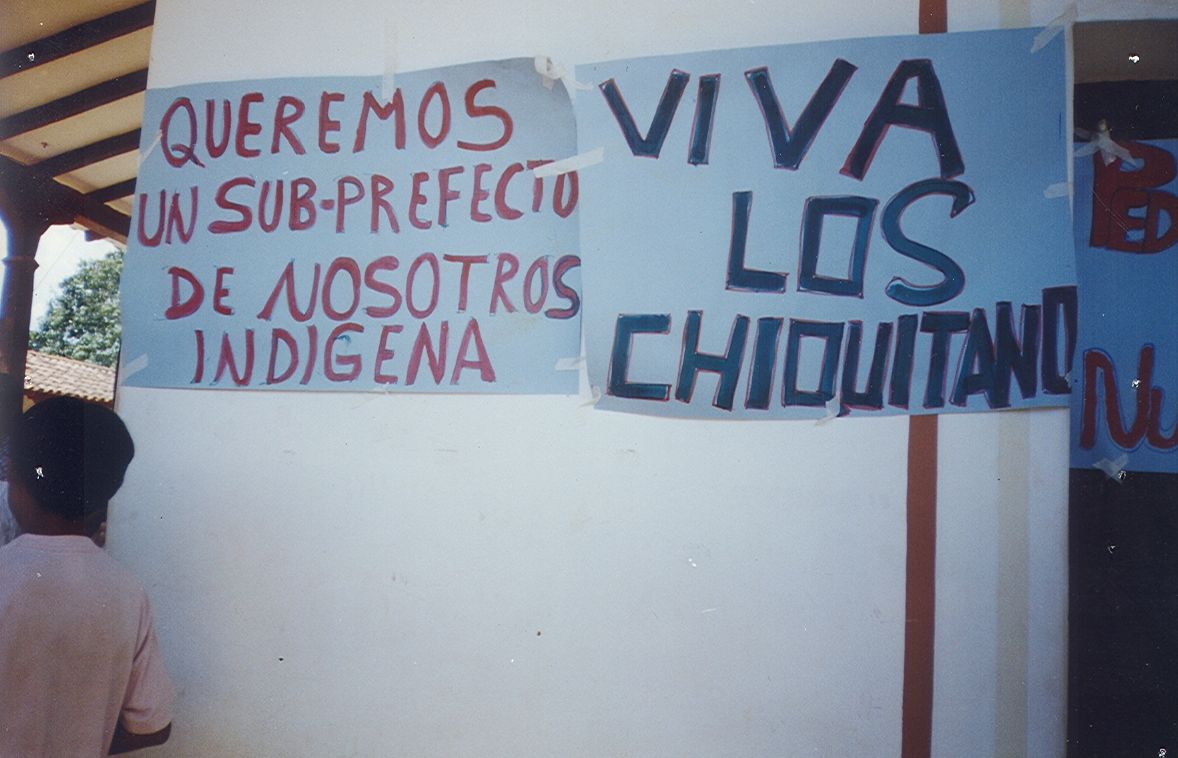 QUEREMOS
UN SUB-PREFECTO
DE NOSOTROS
INDIGENA
VIVA
LOS
CHIQUITANO